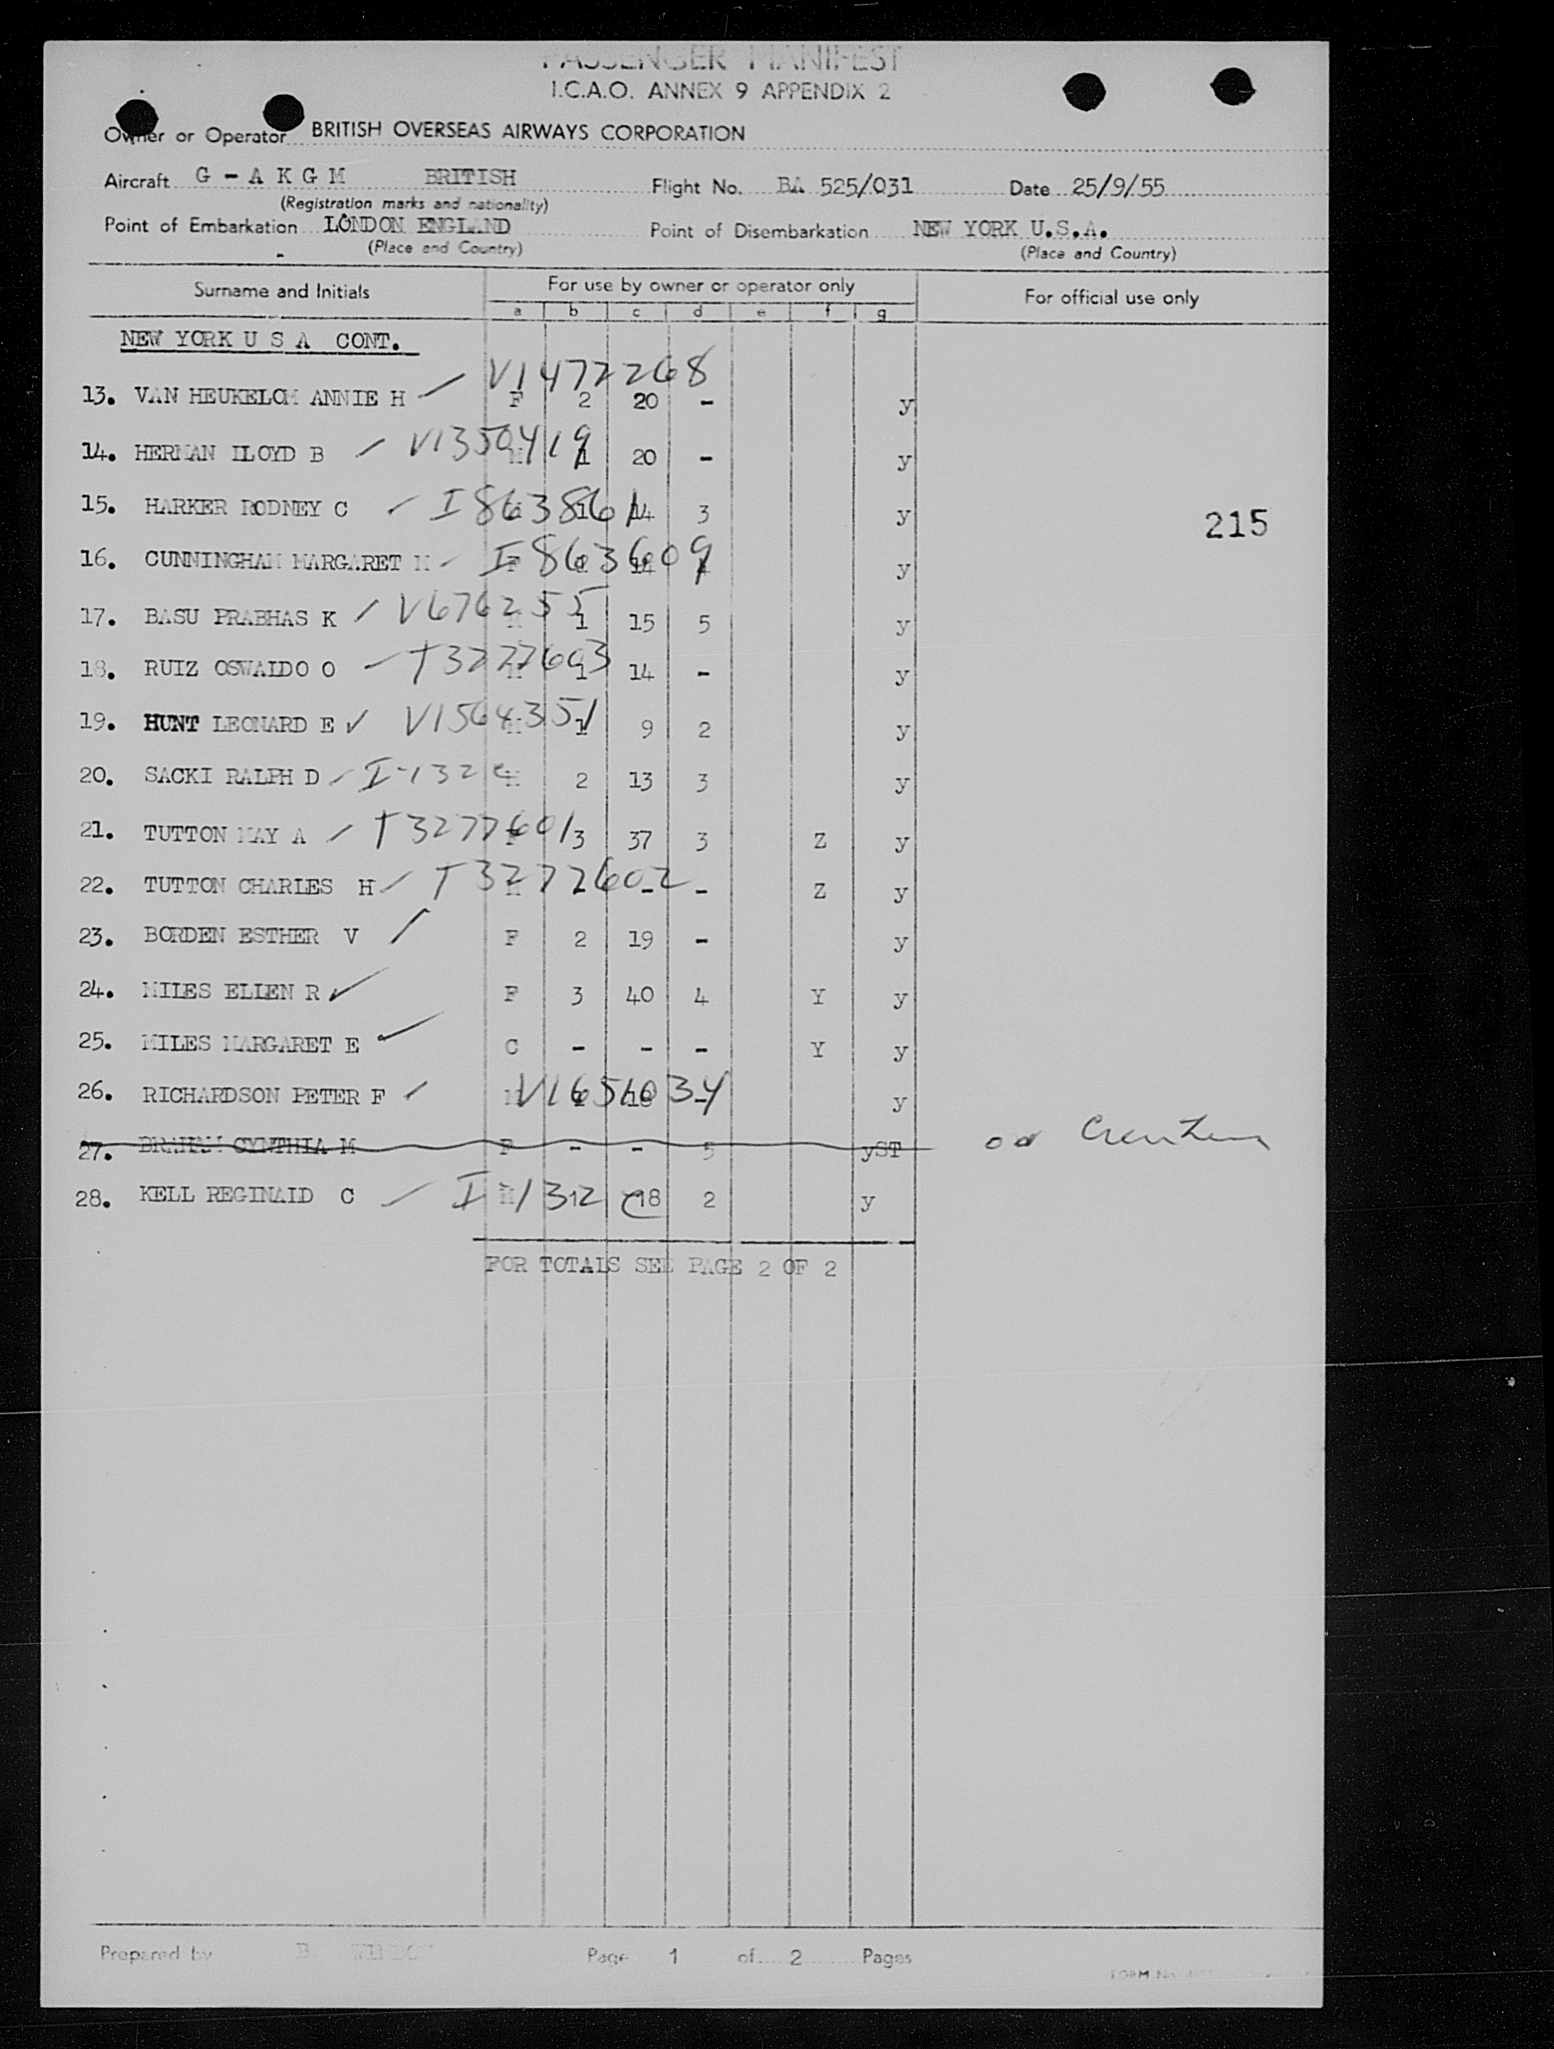 PASSENGER MANIFEST
I.C.A.O. ANNEX 9 APPENDIX 2
Owner or Operator BRITISH OVERSEAS AIRWAYS CORPORATION
Aircraft G - A K G M BRITISH Flight No. BA 525/031 Date 25/9/55
(Registration marks and nationality)
Point of Embarkation LONDON ENGLAND Point of Disembarkation NEW YORK U.S.A.
(Place and Country) (Place and Country)
Surname and Initials For use by owner or operator only For official use only
a b c d e f g
NEW YORK U S A CONT.
V1472268
13. VAN HEUKELOM ANNIE H F 2 20 - y
14. HERMAN LLOYD B V1350419 M 1 20 - y
15. HARKER RODNEY C I863861 M 1 14 3 y
215
16. CUNNINGHAM MARGARET M I863609 F y
17. BASU PRABHAS K V676255 M 1 15 5 y
18. RUIZ OSWALDO O T3277603 M 1 14 - y
19. HUNT LEONARD E V1564351 M 1 9 2 y
20. SACKI RALPH D I-132 M 2 13 3 y
21. TUTTON MAY A T3277601 F 3 37 3 Z y
22. TUTTON CHARLES H T3277602 M - - - Z y
23. BORDEN ESTHER V F 2 19 - y
24. MILES ELLEN R F 3 40 4 Y y
25. MILES MARGARET E C - - - Y y
26. RICHARDSON PETER F V1651034 M 18 - y
27. BRAHAM CYNTHIA M F - - 5 yST
28. KELL REGINALD C I M 2 18 2 y
FOR TOTALS SEE PAGE 2 OF 2
Prepared by Page 1 of 2 Pages